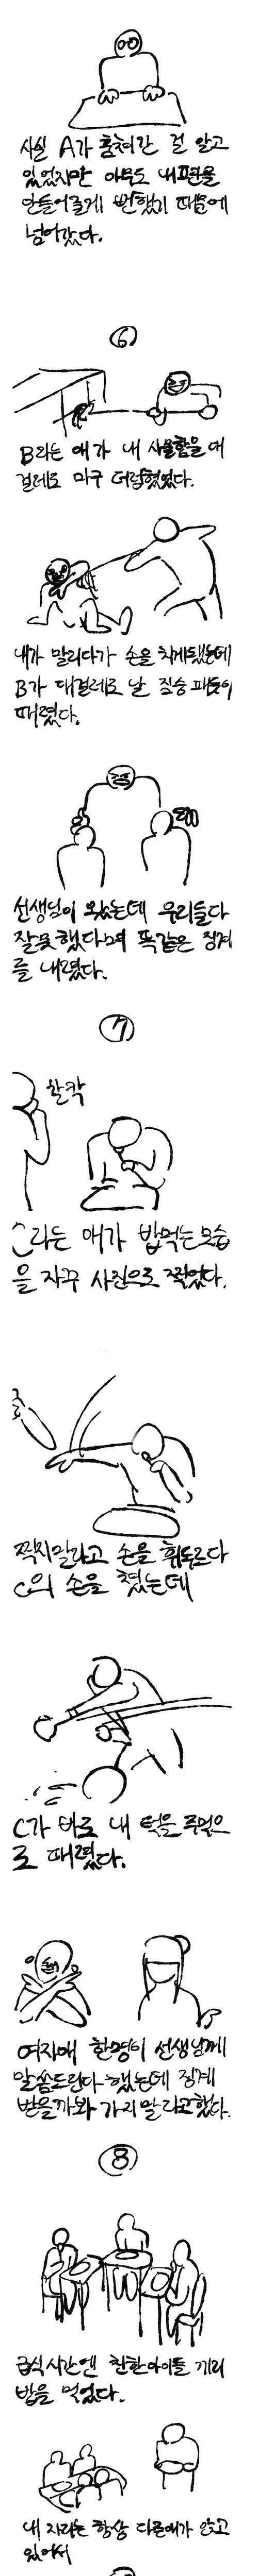 사실 A가 훔쳐간 걸 알고
있었지만 아무도 내편을
안들어줄게 뻔했기 때문에
넘어갔다.
⑥
B라는 애가 내 사물함을 대
걸레로 마구 더럽혔었다.
내가 말리다가 손을 치게됐는데
B가 대걸레로 날 짐승 패듯이
때렸다.
선생님이 왔는데 우리둘다
잘못했다며 똑같은 징계
를 내렸다.
⑦
찰칵
C라는 애가 밥먹는모습
을 자꾸 사진으로 찍었다.
찍지말라고 손을 휘두르다
C의 손을 쳤는데
C가 바로 내 턱을 주먹으
로 때렸다.
여자애 한명이 선생님께
말씀드린다 했는데 징계
받을까봐 가지말라고했다.
⑧
급식시간엔 친한아이들 끼리
밥을 먹었다.
내 자리는 항상 다른애가 앉고
있어서